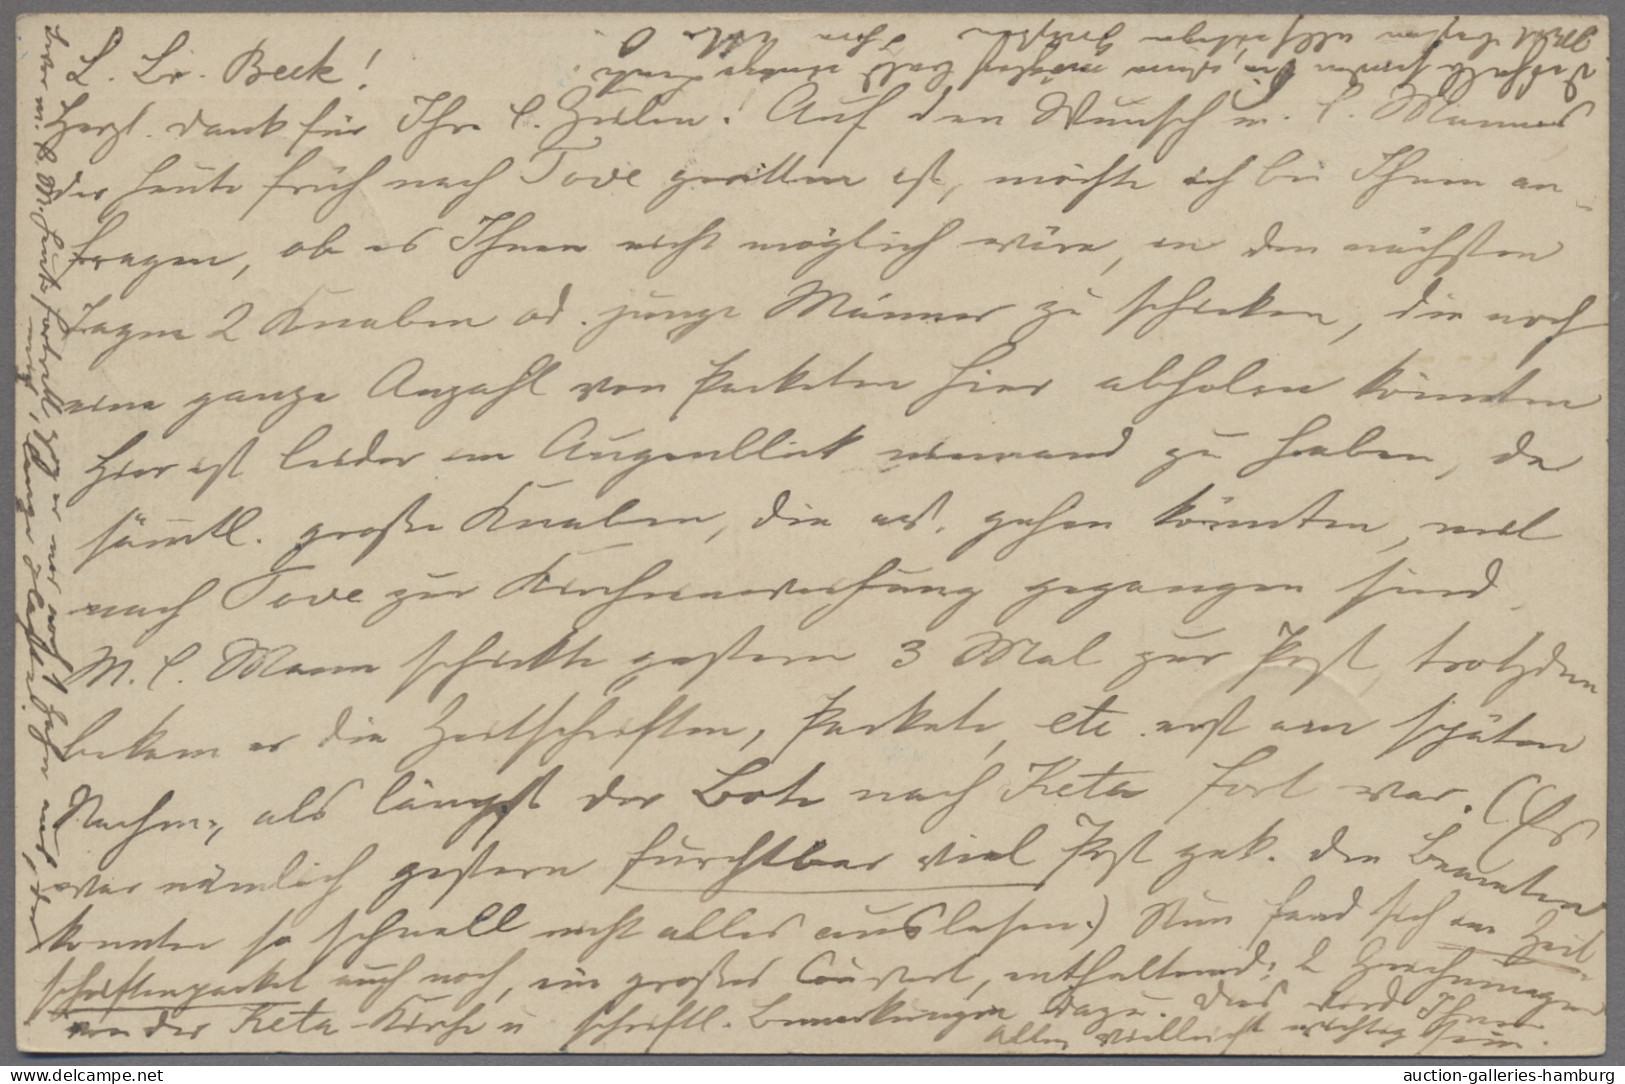 L. Br. Beck!
Herzl. Dank für Ihre l. Zeilen! Auf den Wunsch m. l. Mannes
der heute früh nach Tove geritten ist, möchte ich bei Ihnen an-
fragen, ob es Ihnen nicht möglich wäre, in den nächsten
Tagen 2 Knaben od. junge Männer zu schicken, die noch
eine ganze Anzahl von Paketen hier abholen könnten
Hier ist leider im Augenblick niemand zu haben, da
sämtl. große Knaben, die gehen könnten,
nach Tove zur Kircheneinweihung gegangen sind.
M. l. Mann schickte gestern 3 Mal zur Post, trotzdem
bekam er die Zeitschriften, Pakete, etc. erst am späten
Nachm., als längst der Bote nach Keta fort war. (Es
war nämlich gestern furchtbar viel Post gek. die Beamten
konnten so schnell nicht alles auslesen.) Nun fand sich im Zeit-
schriftenpacket auch noch, ein großes Couvert, enthaltend: 2 Zeichnungen
von der Keta-Kirche u. schriftl. Bemerkungen dazu. Das wird Ihnen
allen vielleicht wichtig sein.
Deshalb senden Sie, wenn möglich bald
Mit besten Grüßen Ihre
auction-galleries-hamburg